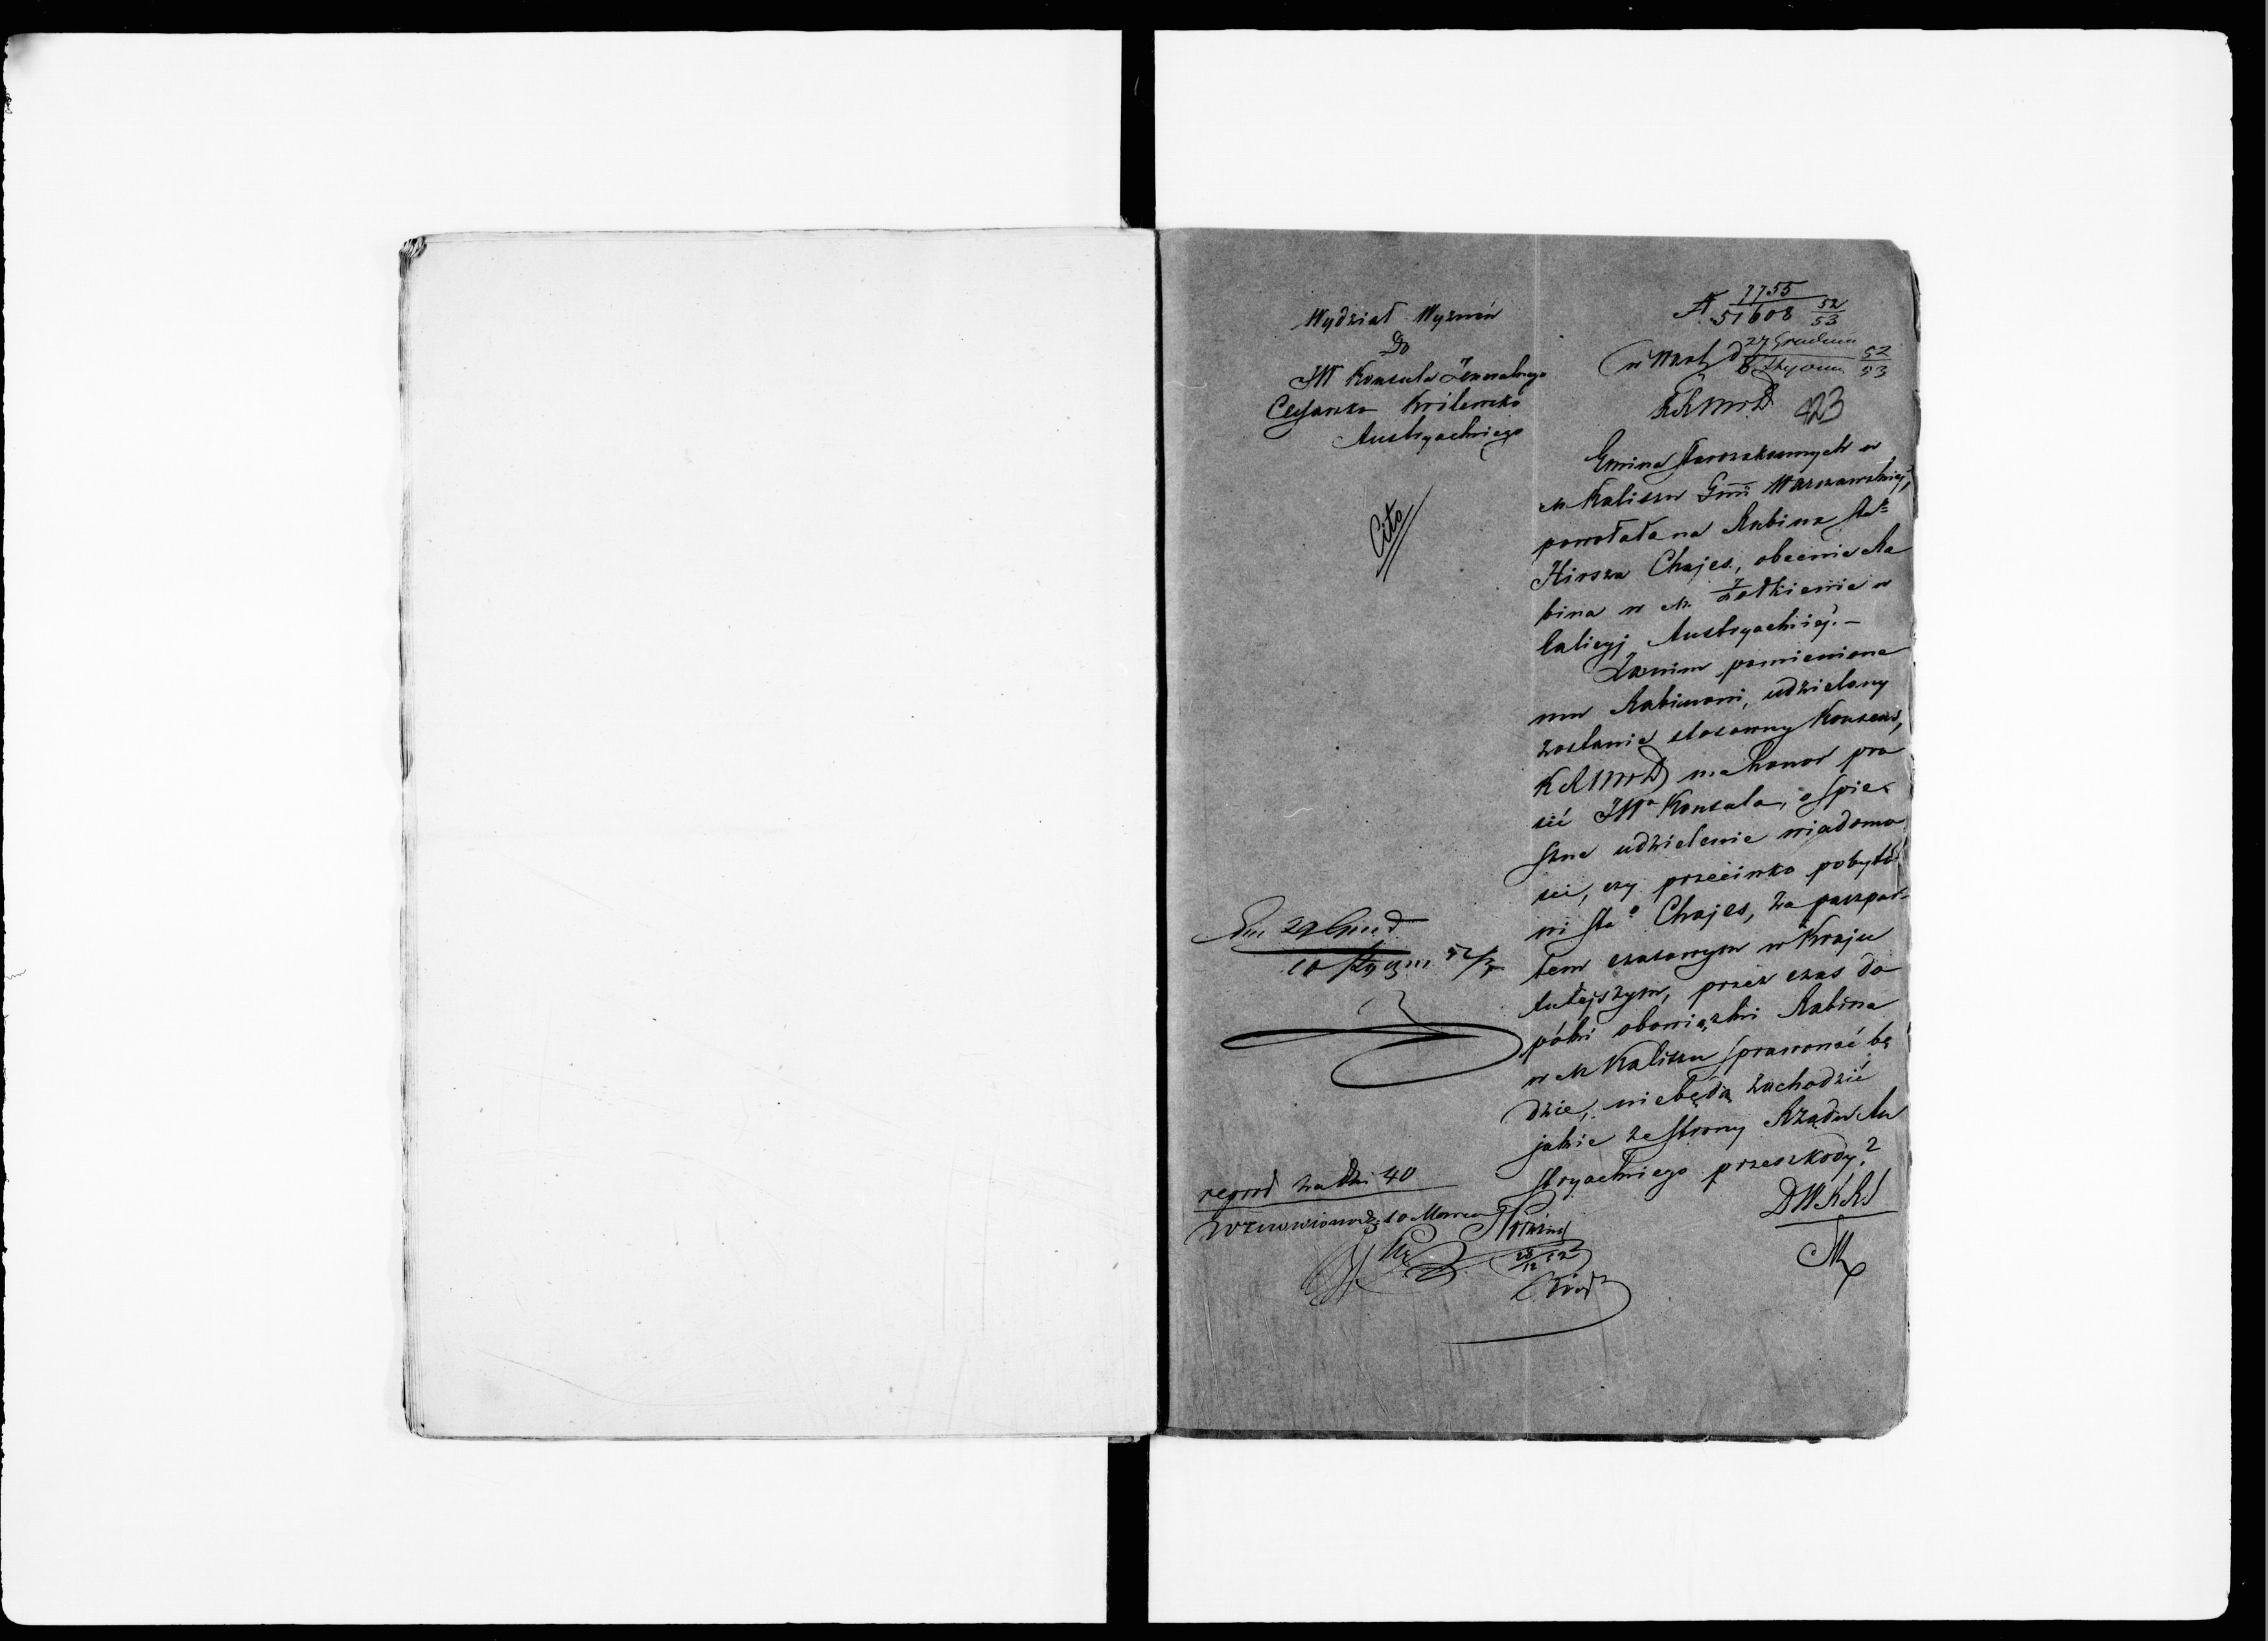 Wydział Wyznń
Do
JW Konsula Jeneralnego
Cesarsko Królewsko
Austryackiego
Cito
N 7755
51608 52/53
w Warsz d 27 Grudnia
8 Stycznia 52/53
KRSWiD
423
Gmina Starozakonnych w
m Kaliszu Gnii Warszawskiej,
powołała na Rabina Sta=
Hirsza Chajes, obecnie Ra
bina w m. Żółkiewie w
Galicyj Austryackiej.—
Zanim pomienione
mu Rabinowi, udzielony
zostanie stosowny Konsens,
KRSWiD ma honor pro
sić JWo Konsula, o spie
szne udzielenie wiadomo
ści, czy przeciwko pobyto
wi Sta° Chajes, za paszpor=
tem czasowym w Kraju
tutejszym, przez czas do
póki obowiązki Rabina
w M Kaliszu sprawować bę
dzie, niebędą zachodzić
jakie ze strony Rządu Au
stryackiego przeszkody?
DWKRS
29 Grud
10 Styczn 52/3
reprod za dni 40
10 Marca
28/12 52